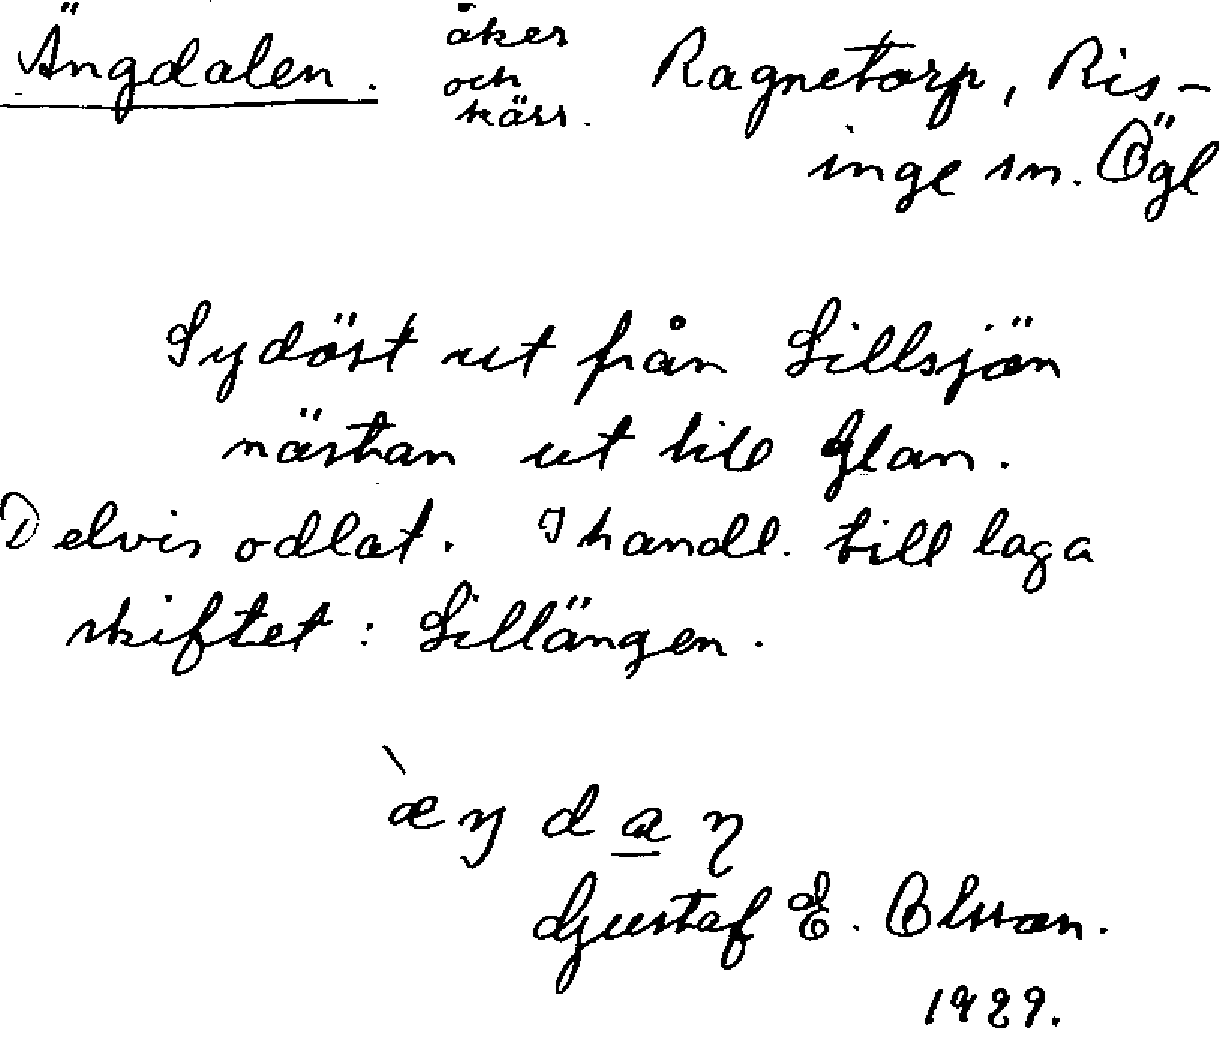 Ängdalen. åker och kärr. Ragnetorp, Ris-
inge sn. Ögl
Sydöst ut från Lillsjön
nästan ut till Glan.
Delvis odlat. I handl. till laga
skiftet: Lillängen.
`æŋdaŋ
Gustaf E. Olsson.
1929.